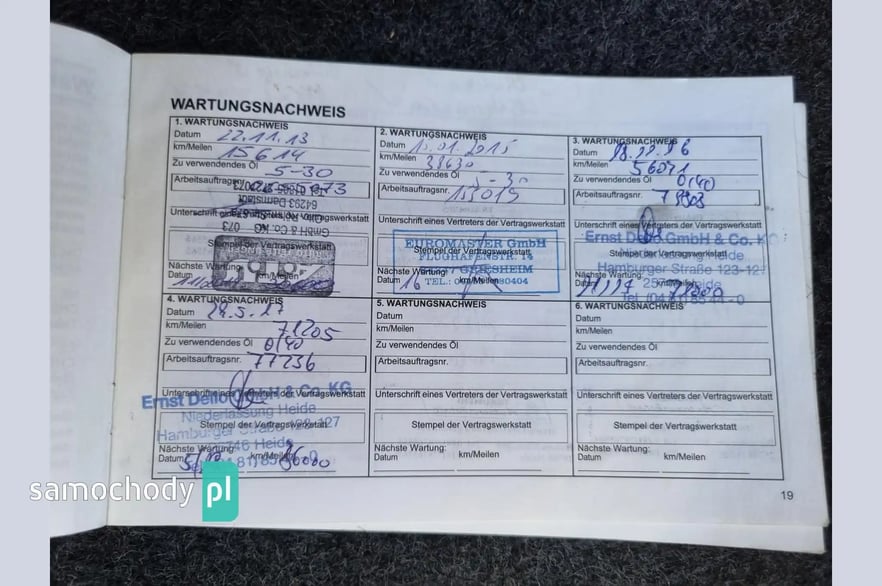 WARTUNGSNACHWEIS
1. WARTUNGSNACHWEIS
Datum 22.11.13
km/Meilen 15614
Zu verwendendes Öl 5-30
Arbeitsauftragsnr.
64293 Darmstadt
Unterschrift eines Vertreters der Vertragswerkstatt
GmbH & Co. KG
073
Stempel der Vertragswerkstatt
Nächste Wartung:
Datum km/Meilen
2. WARTUNGSNACHWEIS
Datum 2015
km/Meilen 38630
Zu verwendendes Öl 5-30
Arbeitsauftragsnr. 153019
Unterschrift eines Vertreters der Vertragswerkstatt
EUROMASTER GmbH
Stempel der Vertragswerkstatt
FLUGHAFENSTR. 14
Nächste Wartung:
Datum 16 km/Meilen
TEL.: 80404
3. WARTUNGSNACHWEIS
Datum
km/Meilen 56071
Zu verwendendes Öl 0/40
Arbeitsauftragsnr.
Unterschrift eines Vertreters der Vertragswerkstatt
Ernst Dello GmbH & Co. KG
Stempel der Vertragswerkstatt
Hamburger Straße 123-127
Nächste Wartung:
Datum km/Meilen
4. WARTUNGSNACHWEIS
Datum 24.5.17
km/Meilen 71205
Zu verwendendes Öl 0/40
Arbeitsauftragsnr. 77236
Unterschrift eines Vertreters der Vertragswerkstatt
Ernst Dello GmbH & Co. KG
Niederlassung Heide
Stempel der Vertragswerkstatt
Hamburger Straße 123-127
25746 Heide
Nächste Wartung:
Datum km/Meilen 86000
5. WARTUNGSNACHWEIS
Datum
km/Meilen
Zu verwendendes Öl
Arbeitsauftragsnr.
Unterschrift eines Vertreters der Vertragswerkstatt
Stempel der Vertragswerkstatt
Nächste Wartung:
Datum km/Meilen
6. WARTUNGSNACHWEIS
Datum
km/Meilen
Zu verwendendes Öl
Arbeitsauftragsnr.
Unterschrift eines Vertreters der Vertragswerkstatt
Stempel der Vertragswerkstatt
Nächste Wartung:
Datum km/Meilen
19
samochody pl